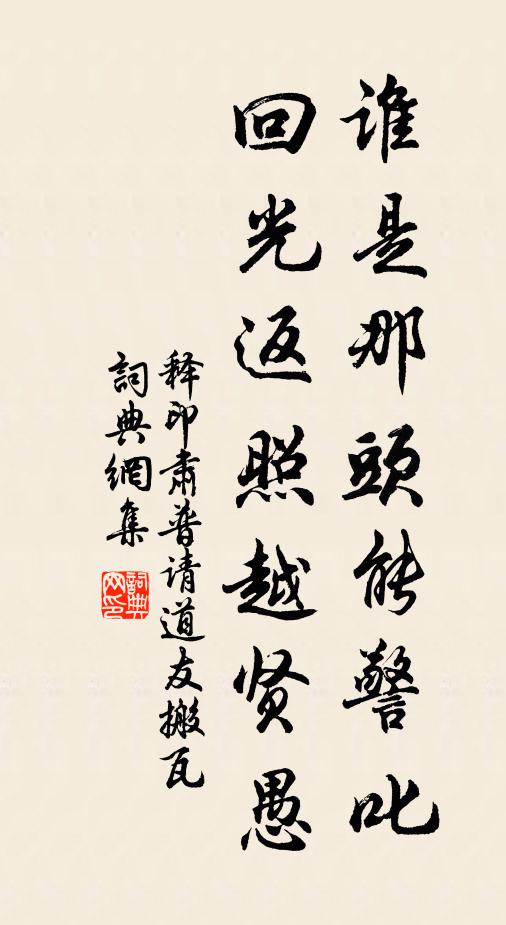 谁是那头能警叱
回光返照越贤愚
释印肃普请道友搬瓦
词典網集
詞典网印